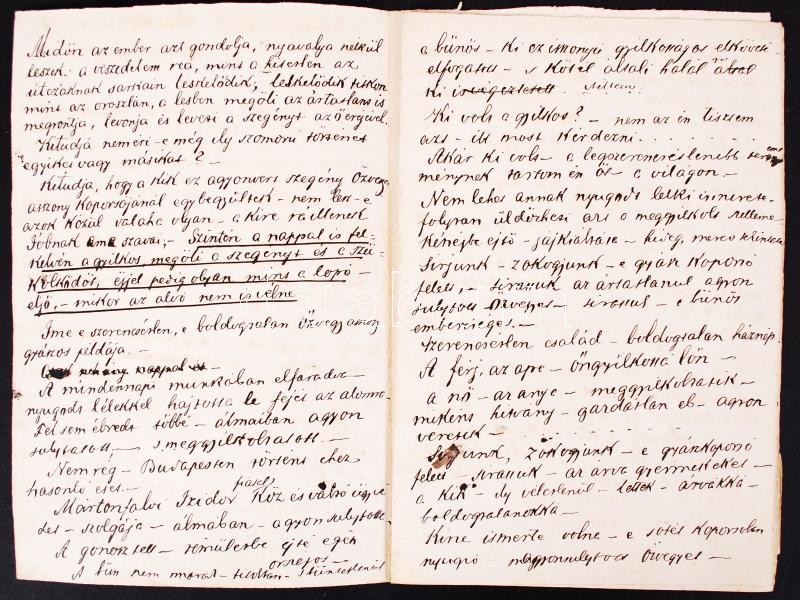 Midőn az ember azt gondolja, nyavalya nélkül
leszek a veszedelem reá, mint a kisértet az
útczáknak sarkain leskelődik, leskelődik titkon
mint az oroszlán, a lesben megöli az ártatlant is
megrontja, levonja és leveri a szegényt az ő erejével
Kitudja nem éri-e még ily szomorú történet
egyiket vagy másikat? –
Kitudja, hogy a kik ez agyonvert szegény özvegy
asszony koporsójánál egybegyűltek – nem lesz-e
azok közül valaha olyan – a kire ráillenek
Jóbnak ama szavai; – Szintén a nappal is fel-
kelvén a gyilkos, megöli a szegényt és a szű-
kölködőt, éjjel pedig olyan mint a lopó –
eljő, – mikor az alvó nem is vélne
Ime e szerencsétlen, e boldogtalan özvegyasszony
gyászos példája. –
néhány nappal
A mindennapi munkában elfáradva –
nyugodt lélekkel hajtotta le fejét az álomra
Fel sem ébredt többé – álmaiban agyon
sulytatott, – s meggyilkoltatott –
Nem rég – Budapesten történt ehez
hasonló eset –
Mártonfalvi Izidor köz és váltó ügyvé-
det – szolgája – álmában – agyon sulytotta
A gonosz tett – rémületbe ejté egész
országot –
A bűn nem marad – titokban – büntetlenül
a bűnös – ki ez iszonyú gyilkosságot elkövette
elfogatott – s kötél általi halál által
ki is végeztetett.
Ki volt a gyilkos? – nem az én tisztem
azt – itt most kérdezni. . . . . .
Akár ki volt – a legszerencsétlenebb terem
ménynek tartom én őt – a világon. –
Nem lehet annak nyugodt lelki ismerete –
folyvást üldözheti azt a meggyilkolt szelleme
kétségbe ejtő – jajkiáltása – hideg, merev tekintete
Sirjunk – zokogjunk – e gyász koporsó
felett, – sirassuk az ártatlanul agyon
sulytott özvegyet – sirassuk – e bűnös
emberiséget. –
Szerencsétlen család – boldogtalan háznép.
A férj, az apa – öngyilkossá lőn –
a nő – az anya – meggyilkoltatik –
miként hitvány – gazdátlan eb – agyon
veretik – . . . . . . . .
Sirjunk, zokogjunk – e gyászkoporsó
felett – sirassuk – az árva gyermekeket –
a kik – ily véletlenül – lettek – árvákká –
boldogtalanokká –
Kine ismerte volna – e sötét koporsóban
nyugvó – agyonsulytott özvegyet –